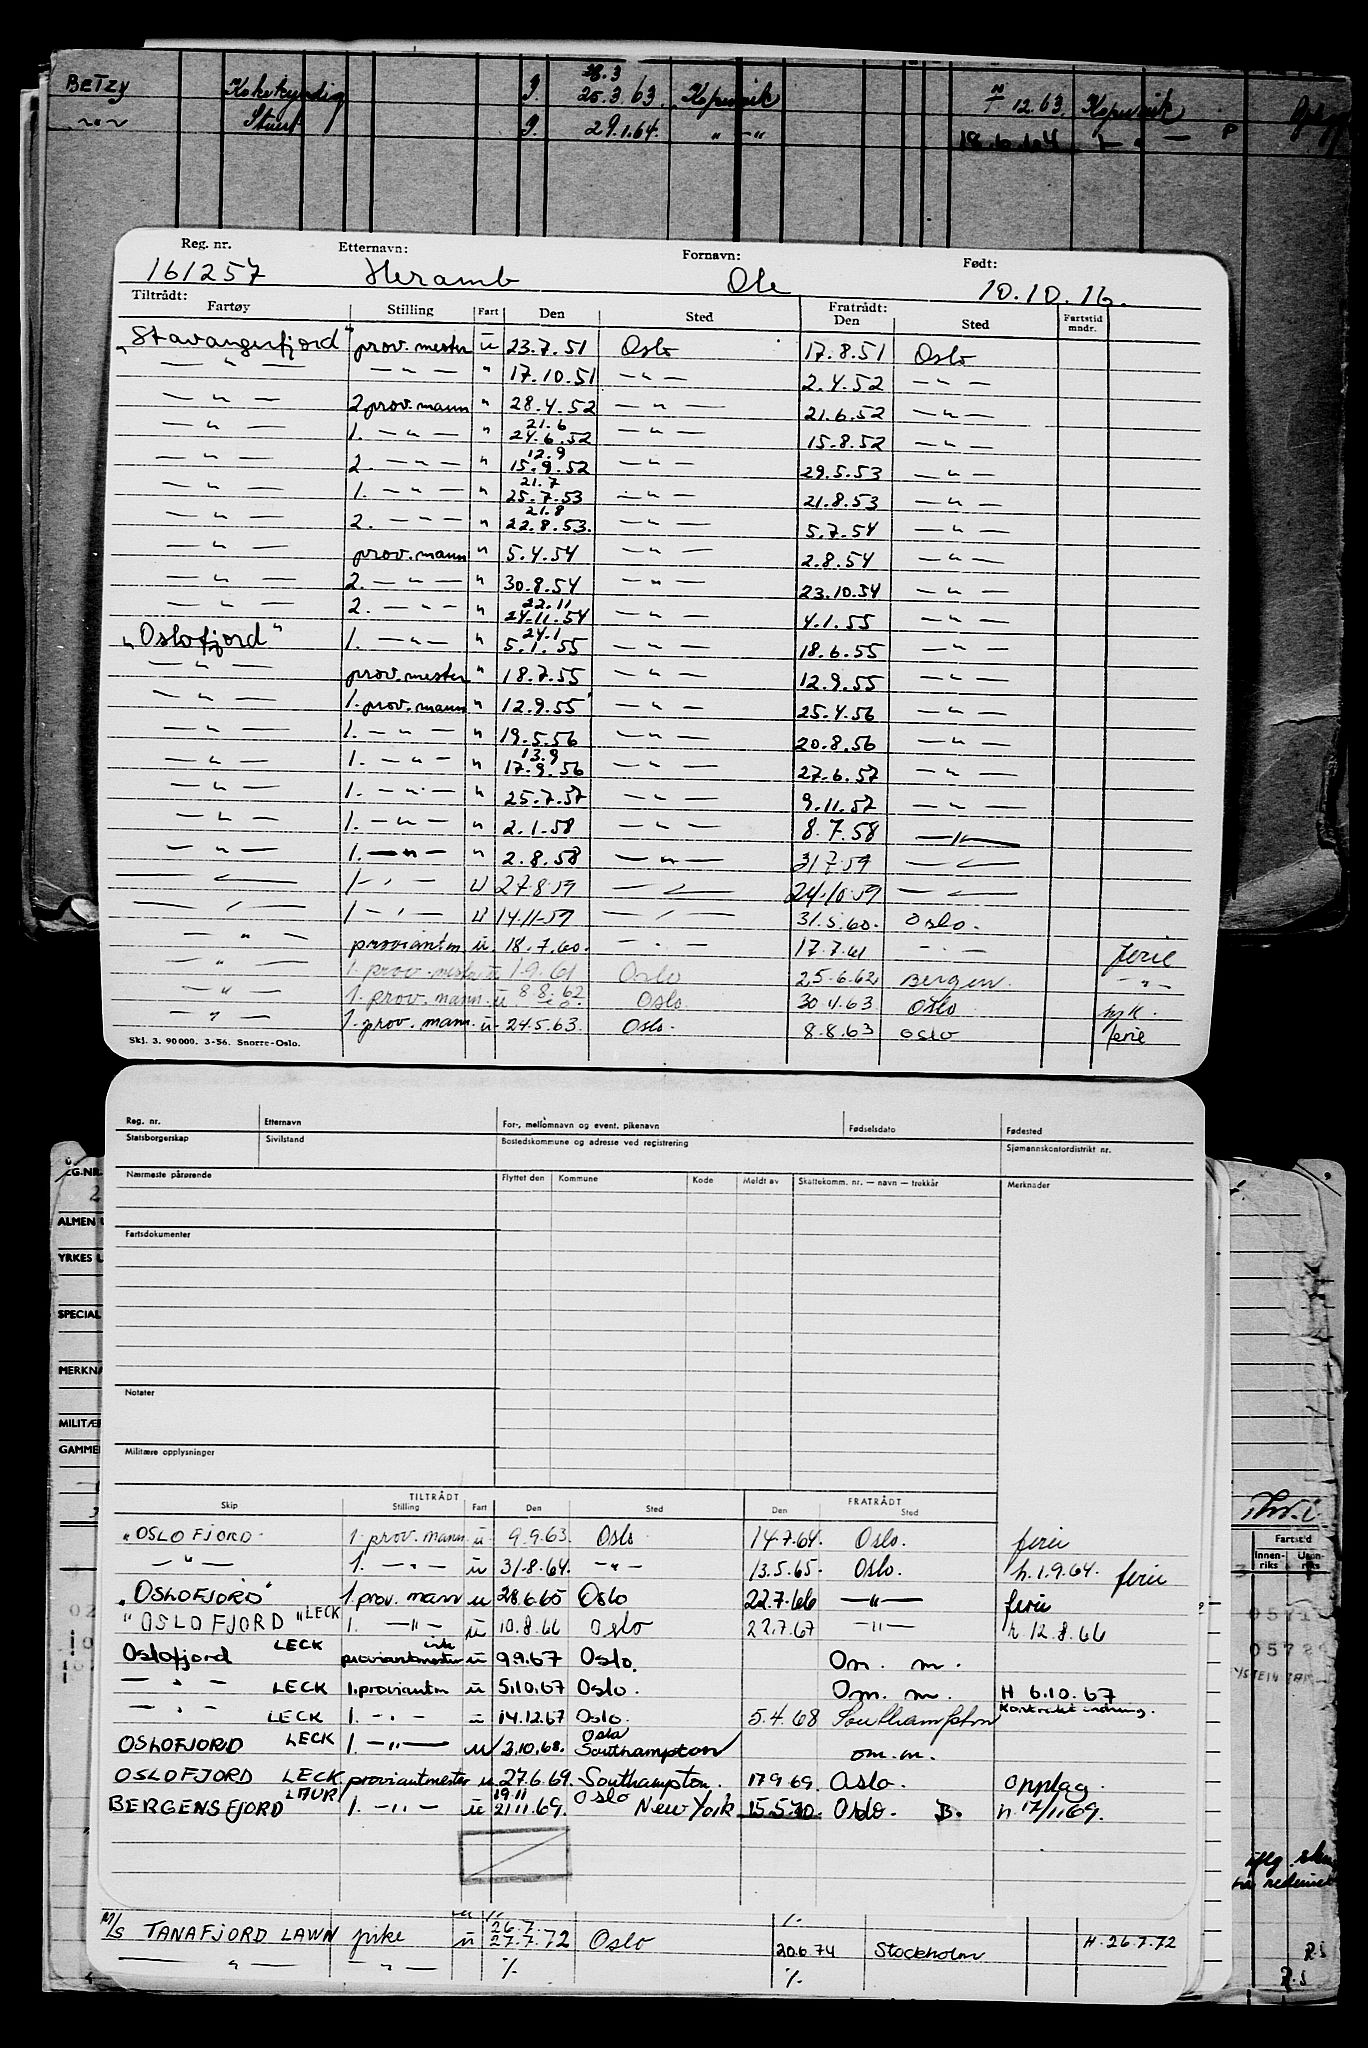 BETZY Kokekyndig 9. 28.3 25.3.63 Kopervik 12.63 Kopervik
-"- Stuert 9. 29.1.64 " - " 18.6.64 - " - P
Reg. nr. Etternavn: Fornavn: Født:
161257 Heramb Ole 10.10.16.
Tiltrådt: Fartøy Stilling Fart Den Sted Fratrådt: Den Sted Fartstid mndr.
"Stavangerfjord" prov.mester ü 23.7.51 Oslo 17.8.51 Oslo
— " — — " — " 17.10.51 — " — 2.4.52 — " —
— " — 2 prov.mann " 28.4.52 — " — 21.6.52 — " —
— " — 1. — " — " 21.6 24.6.52 — " — 15.8.52 — " —
— " — 2. — " — " 12.9 15.9.52 — " — 29.5.53 — " —
— " — 1. — " — " 21.7 25.7.53 — " — 21.8.53 — " —
— " — 2. — " — " 21.8 22.8.53. — " — 5.7.54 — " —
— " — prov.mann " 5.4.54 — " — 2.8.54 — " —
— " — 2. — " — " 30.8.54 — " — 23.10.54 — " —
— " — 2. — " — " 22.11 24.11.54 — " — 4.1.55 — " —
"Oslofjord" 1. — " — " 24.1 5.1.55 — " — 18.6.55 — " —
— " — prov.mester " 18.7.55 — " — 12.9.55 — " —
— " — 1. prov.mann " 12.9.55 — " — 25.4.56 — " —
— " — 1. — " — " 19.5.56 — " — 20.8.56 — " —
— " — 1. — " — " 13.9 17.9.56 — " — 27.6.57 — " —
— " — 1. — " — " 25.7.57 — " — 9.11.57 — " —
— " — 1. — " — " 2.1.58 — " — 8.7.58 — " —
— " — 1. — " — " 2.8.58 — " — 31.7.59 — " —
— " — 1 — " — U 27.8.59 — " — 24.10.59 — " —
— " — 1 — " — U 14.11.59 — " — 31.5.60. Oslo.
— " — proviantm ü. 18.7.60. — " — 17.7.61 — " — ferie
— " — 1. prov.mester ü 1.9.61 Oslo 25.6.62 Bergen. — " —
— " — 1. prov.mann. ü 8.8.62 Oslo. 30.4.63 Oslo syk.
— " — 1. prov.mann. ü. 24.5.63. Oslo. 8.8.63 Oslo ferie
Skj. 3. 90 000. 3-56. Snorre-Oslo.
Reg. nr. Etternavn For-, mellomnavn og event. pikenavn Fødselsdato Fødested
Statsborgerskap Sivilstand Bostedskommune og adresse ved registrering Sjømannskontordistrikt nr.
Nærmeste pårørende Flyttet den Kommune Kode Meldt av Skattekomm. nr. — navn — trekkår Merknader
Fartsdokumenter
Notater
Militære opplysninger
TILTRÅDT FRATRÅDT
Skip Stilling Fart Den Sted Den Sted
"OSLOFJORD" 1. prov.mann ü 9.9.63. Oslo 14.7.64. Oslo. ferie
— " — 1. — " — ü 31.8.64. — " — 13.5.65. Oslo. h.1.9.64. ferie
"OSLOFJORD" 1. prov.mann ü 28.6.65 Oslo 22.7.66 — " — ferie
"OSLOFJORD" LECK 1. — " — ü 10.8.66 Oslo 22.7.67 — " — h 12.8.66
Oslofjord LECK proviantmester ü 9.9.67 Oslo. Om. m.
— " — LECK 1.proviantm ü 5.10.67 Oslo. Om. m. H 6.10.67
— " — LECK 1. — " — ü 14.12.67 Oslo. 5.4.68 Southampton Kontrakt
OSLOFJORD LECK 1. — " — ü 3.10.68. Oslo Southampton om.m.
OSLOFJORD LECK proviantmester ü. 27.6.69. Southampton. 17.9.69. Oslo. Opplag.
BERGENSFJORD LMUR 1. — " — ü 19.11 21.11.69. Oslo New York 15.5.70. Oslo. B. h.17/11.69.
M/S TANAFJORD LAWN pike ü 26.7. 27.7.72 Oslo 20.6.74 Stockholm H.26.7.72
— " — — " — %. %.
ALMEN
YRKES
SPECIAL
MERKNA
MILITÆR
GAMMEL
Fartstid
Innen-riks Uten-riks